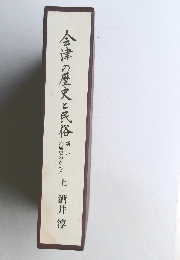 会津の歴史と民俗
上
酒井 淳